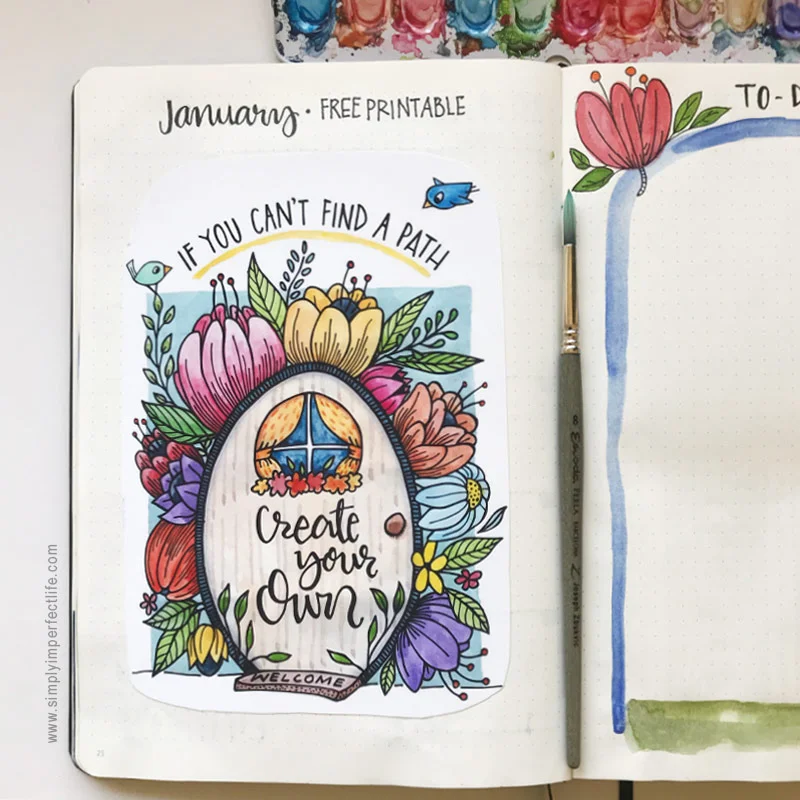 January • FREE PRINTABLE
TO-D
IF YOU CAN'T FIND A PATH
create
your
Own
WELCOME
www.simplyimperfectlife.com
21
8